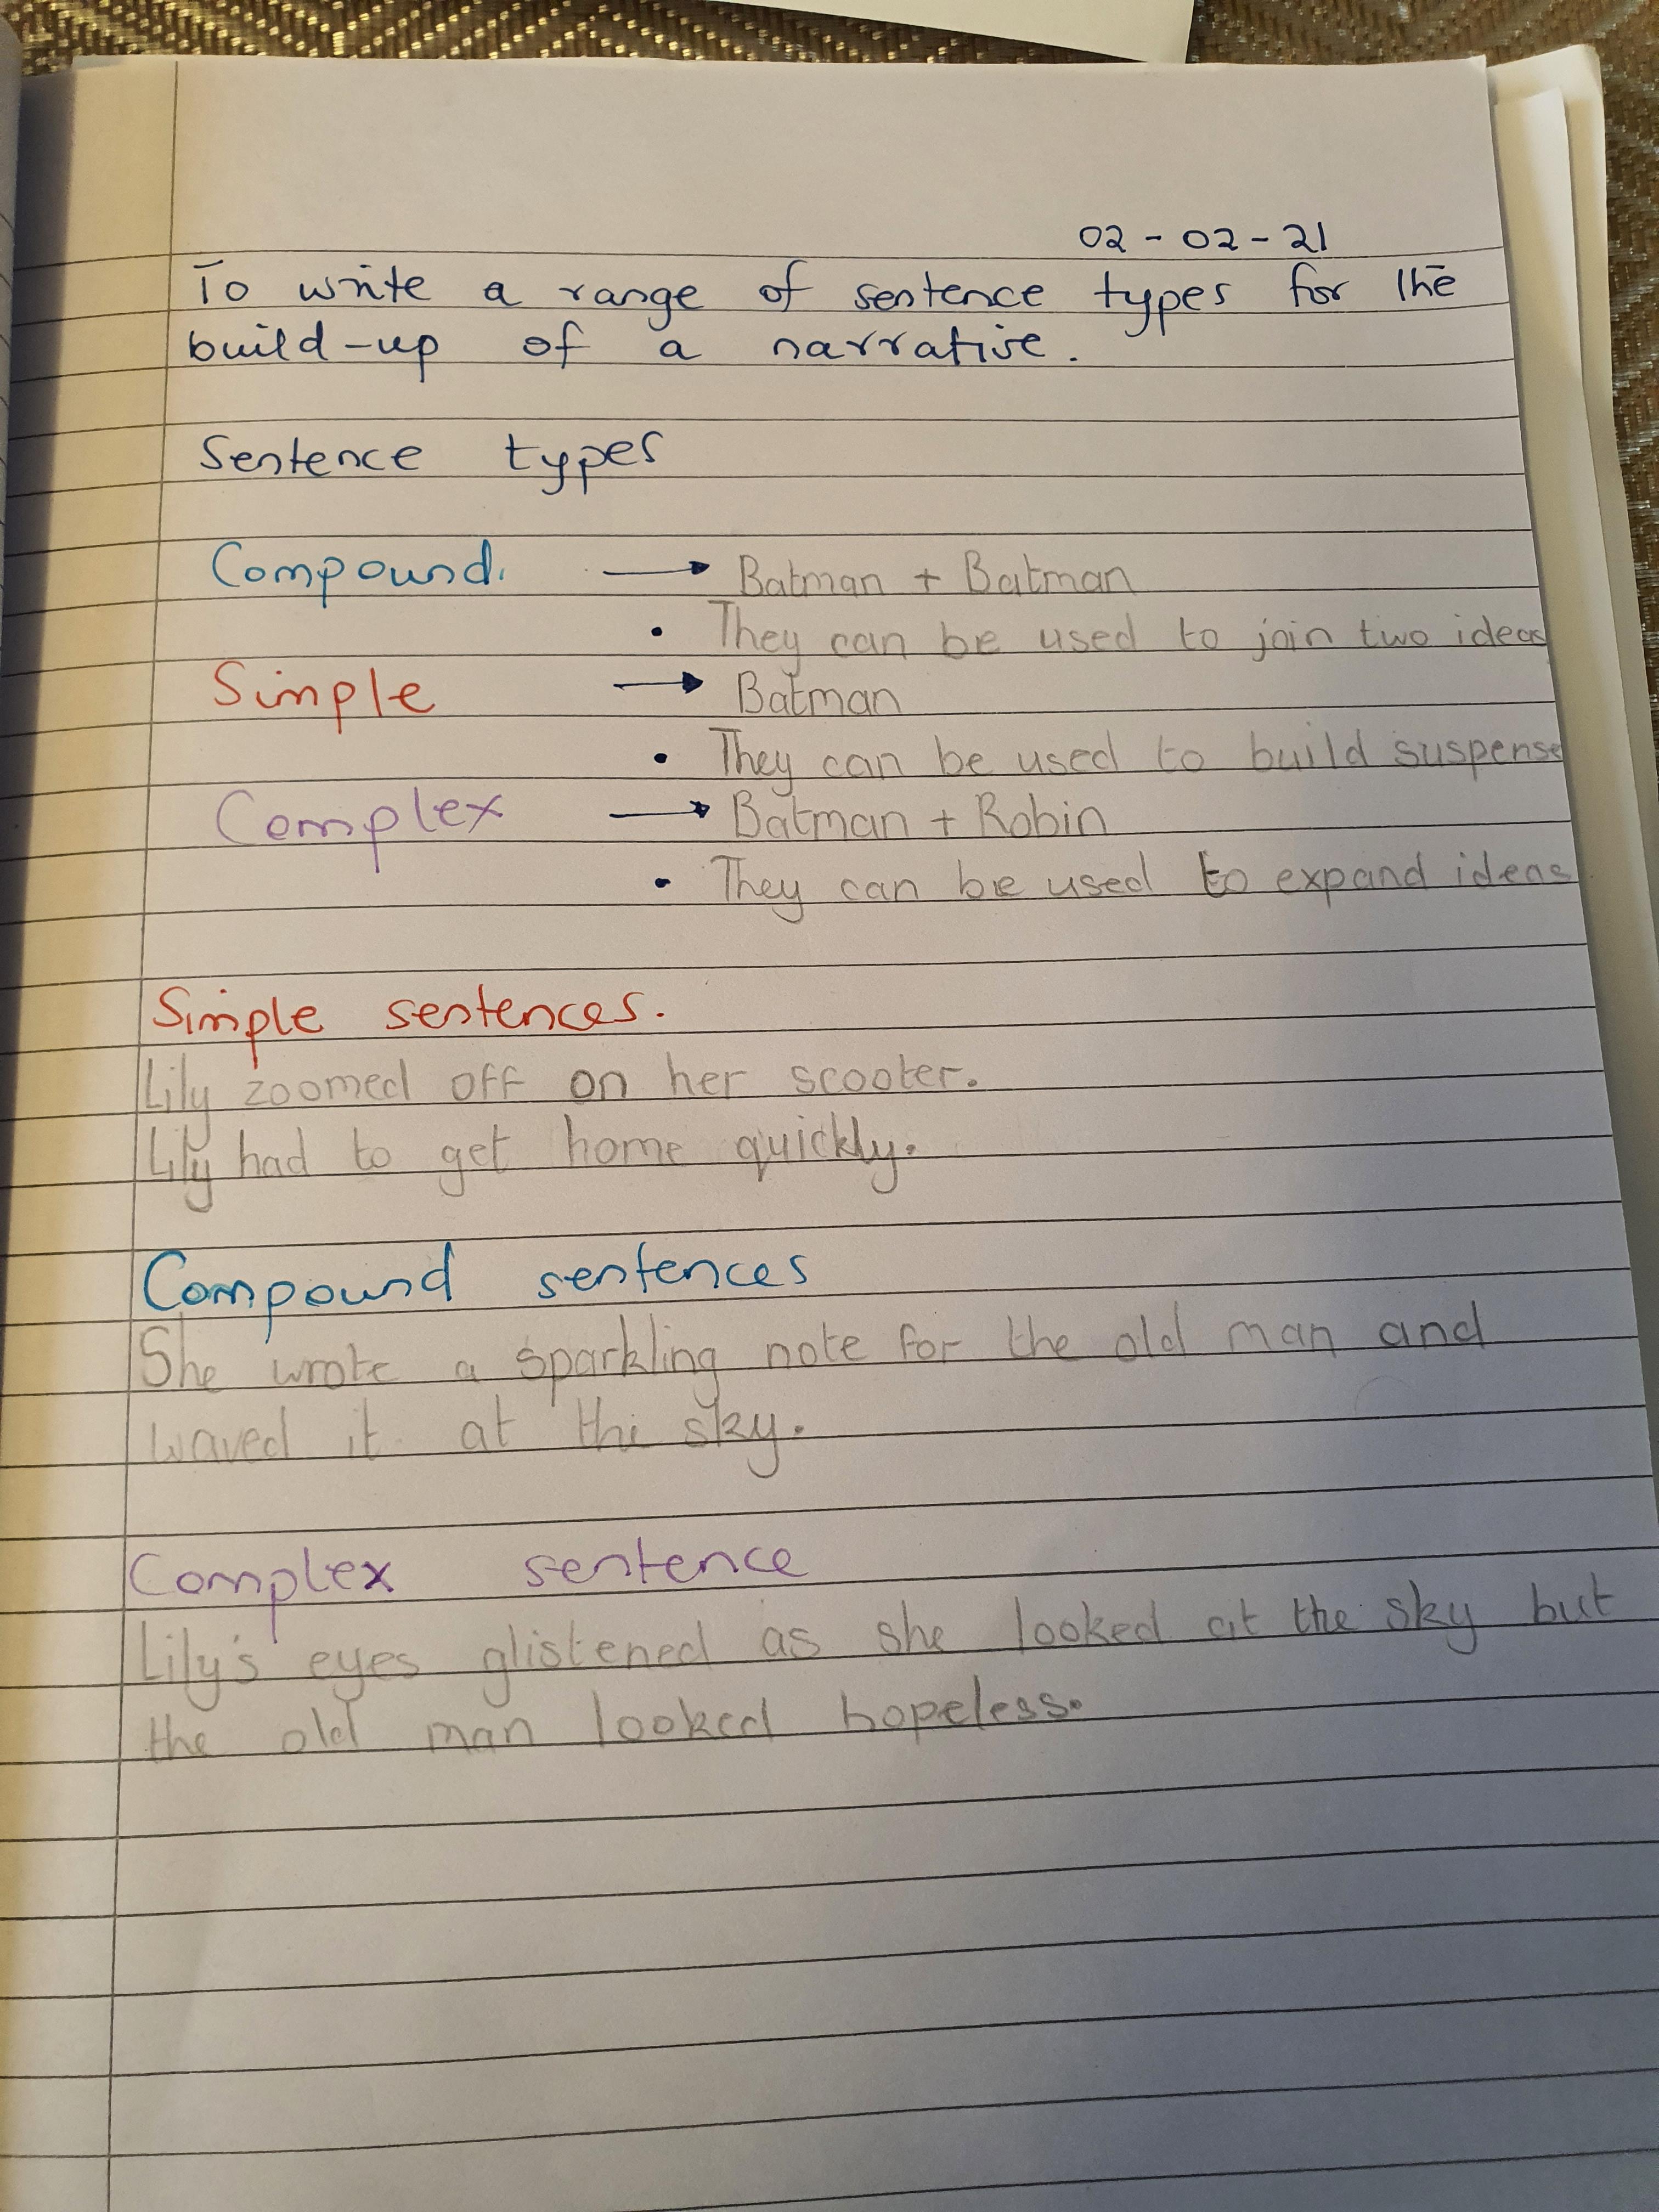 02 - 02 - 21
To write a range of sentence types for the
build-up of a narrative.
Sentence types
Compound. → Batman + Batman
• They can be used to join two ideas
Simple → Batman
• They can be used to build suspense
Complex → Batman + Robin
• They can be used to expand ideas
Simple sentences.
Lily zoomed off on her scooter.
Lily had to get home quickly.
Compound sentences
She wrote a sparkling note for the old man and
waved it at the sky.
Complex sentence
Lily's eyes glistened as she looked at the sky but
the old man looked hopeless.